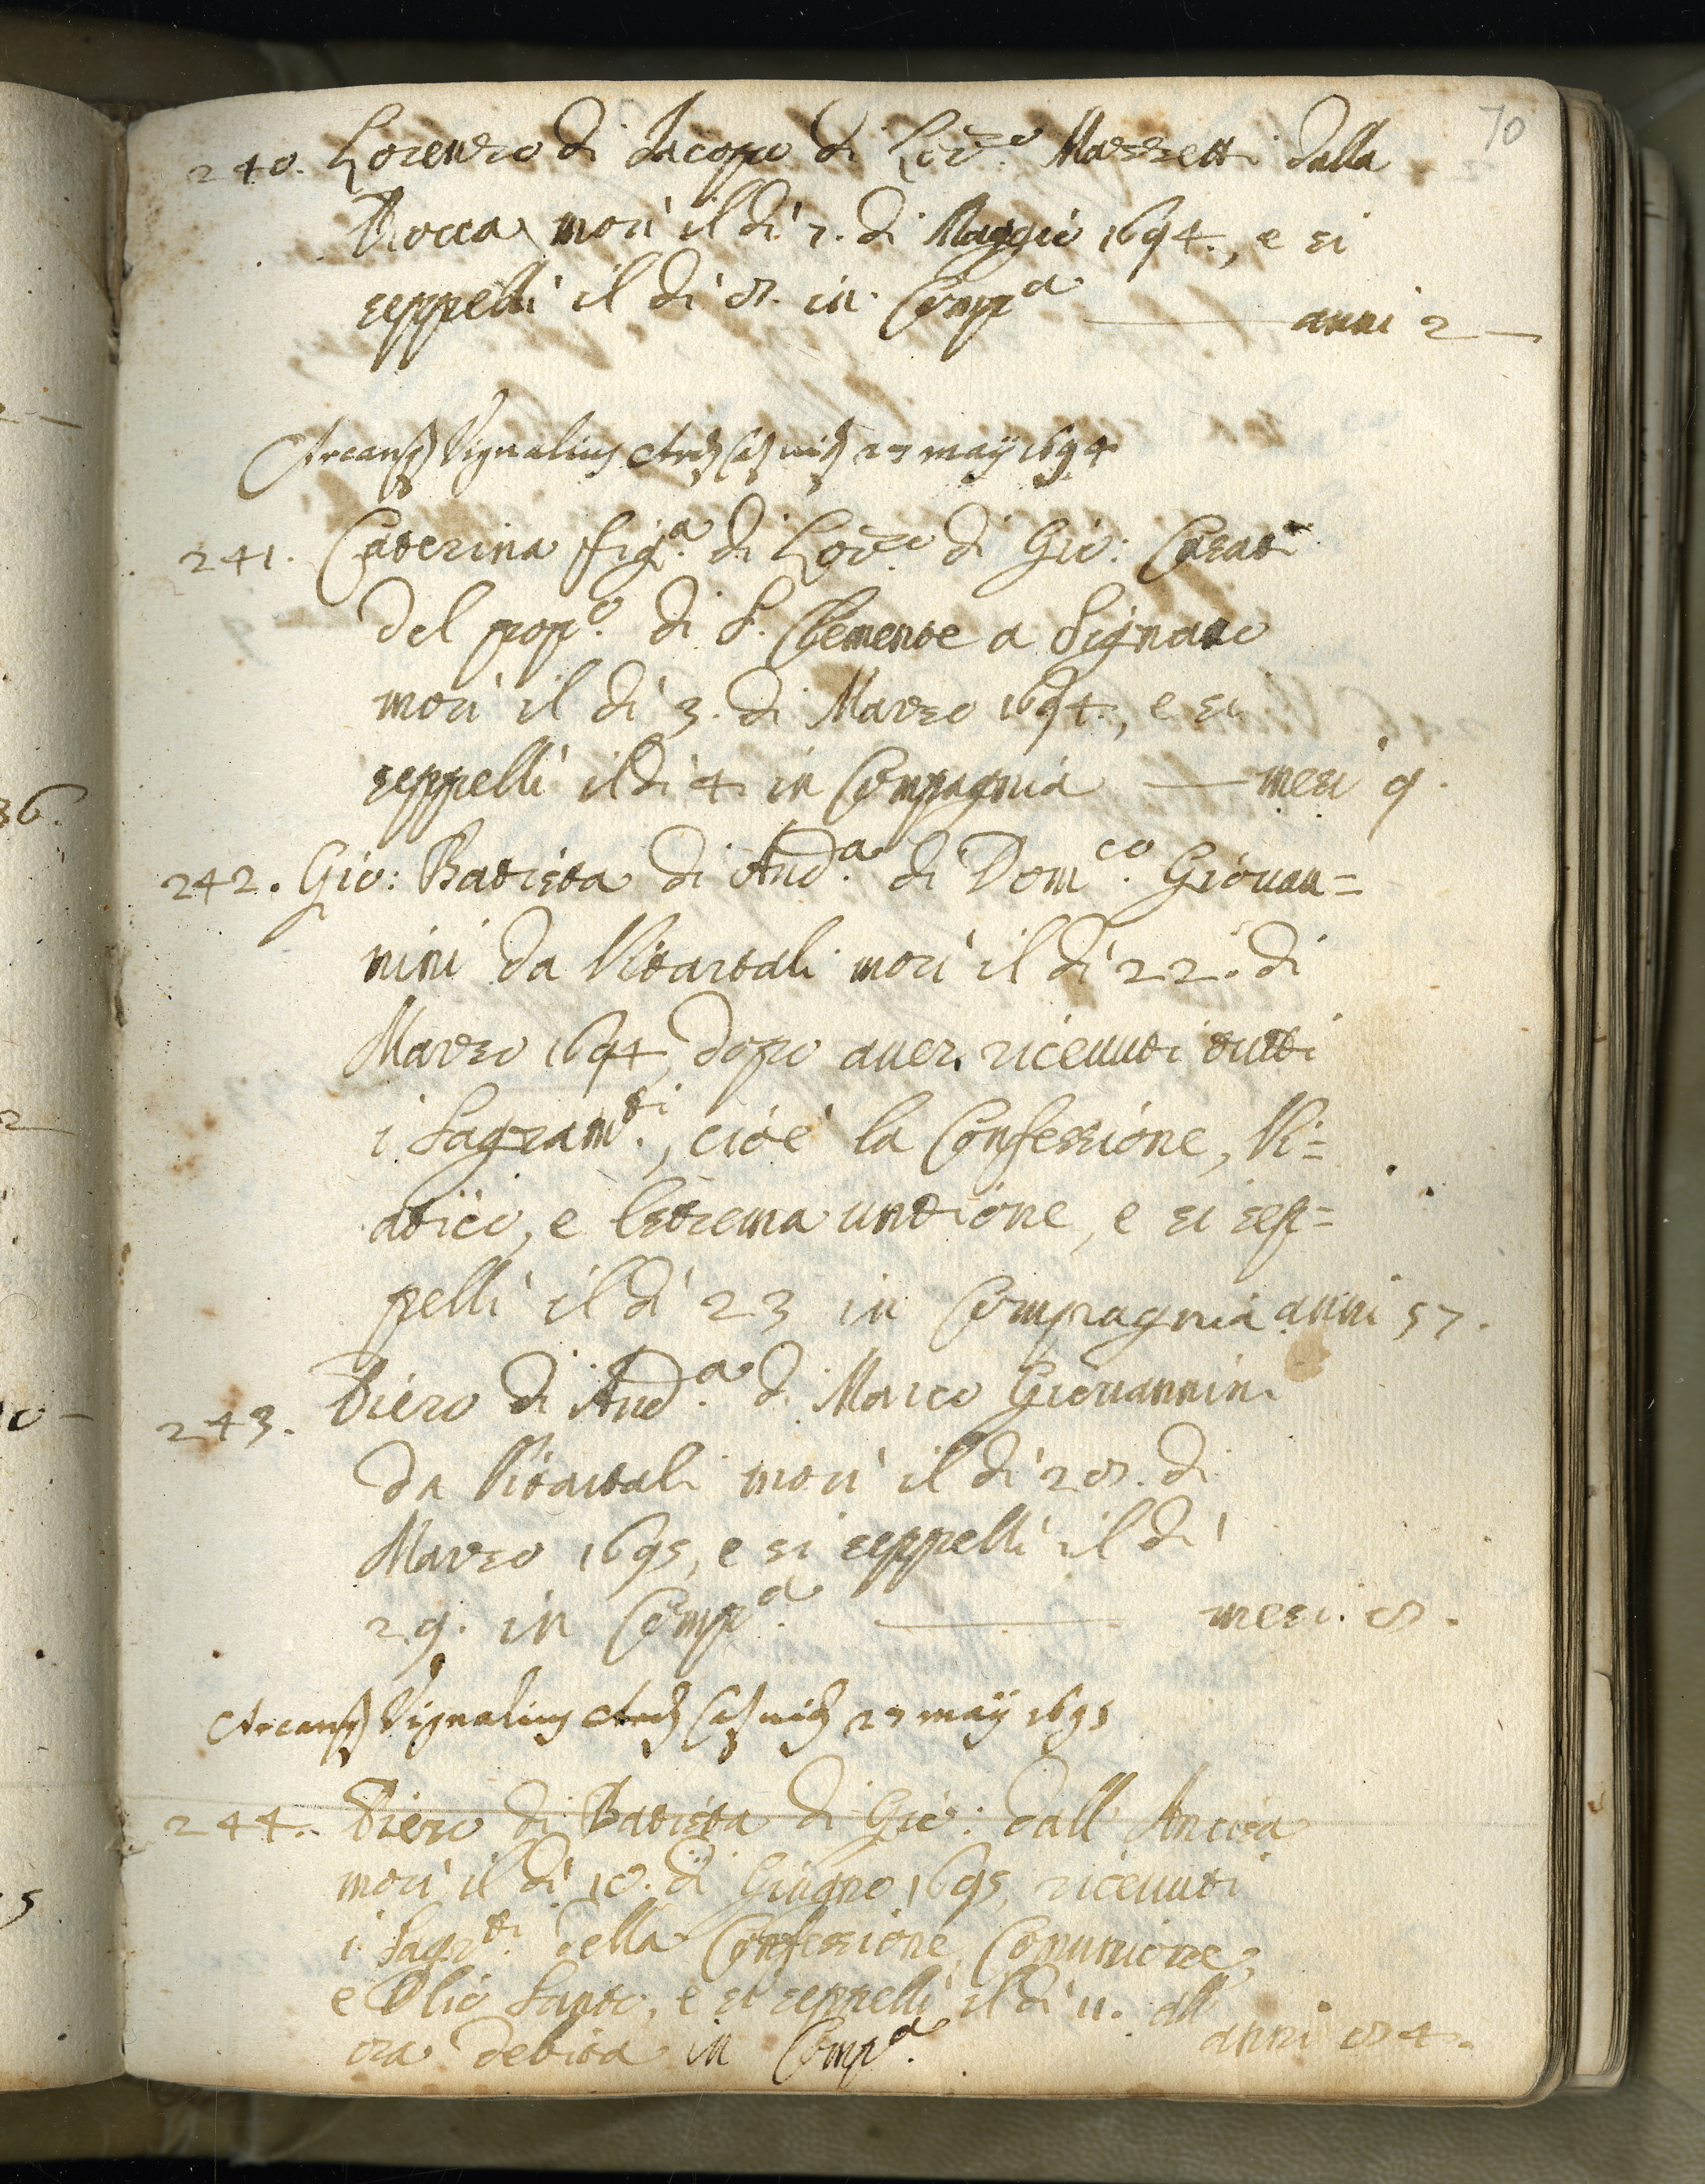 70
240. Lorenzo di Jacopo di Lor.zo Mazzetti dalla
Rocca morì il dì 7. di Maggio 1694., e si
seppellì il dì 8. in Comp.a — anni 2 —
Vignalius 27 may 1694
241. Caterina fig.a di Lor.zo di Gio: Casati
del pop.o di S. Clemente a Signano
morì il dì 3. di Marzo 1694., e si
seppellì il dì 4. in Compagnia — mesi 9.
242. Gio: Batista di And.a di Dom.co Giouan=
nini da Vitartali morì il dì 22. di
Marzo 1694, dopo auer riceuuti tutti
i Sagram.ti, cioè la Confessione, Vi=
atico, e l'estrema untione, e si sep=
pellì il dì 23 in Compagnia anni 57.
243. Piero di And.a di Marco Giouannini
da Vitartali morì il dì 28. di
Marzo 1695, e si seppellì il dì
29. in Comp.a — mesi. 8.
Vignalius 27 may 1695
244. Piero di Batista di Gio: dall Ancisa
morì il dì 10. di Giugno 1695, riceuuti
i Sagr.ti della Confessione, Comunione,
e Olio Santo, e si seppellì il dì 11. all
ora debita in Comp.a anni 84.